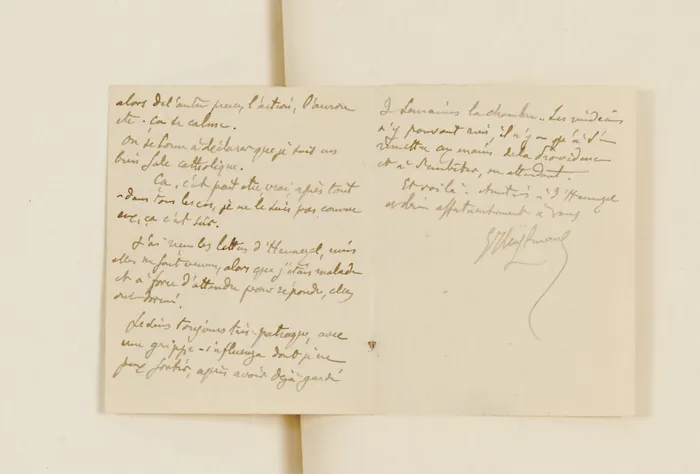 alors de l'autre presse, l'action, l'aurore
etc - ça se calme.
On se borne à déclarer que je suis un
bien sale catholique.
Ça, c'est peut etre vrai, après tout
- dans tous les cas, je ne le suis pas comme
eux, ça c'est sûr.
J'ai reçu les lettres d'Hennzel, mais
elles me sont venues, alors que j'étais malade
et à force d'attendre pour répondre, elles
ont dormi.
Je suis toujours très patraque, avec
une grippe - influenza dont je ne
peux sortir, après avoir déjà gardé
3 semaines la chambre.. Les médecins
n'y pouvant rien, il n'y a qu'à s'en
remettre aux mains de la Providence
et à s'embêter, en attendant.
Et voilà. Amitiés à
et bien affectueusement à vous
GJHuysmans